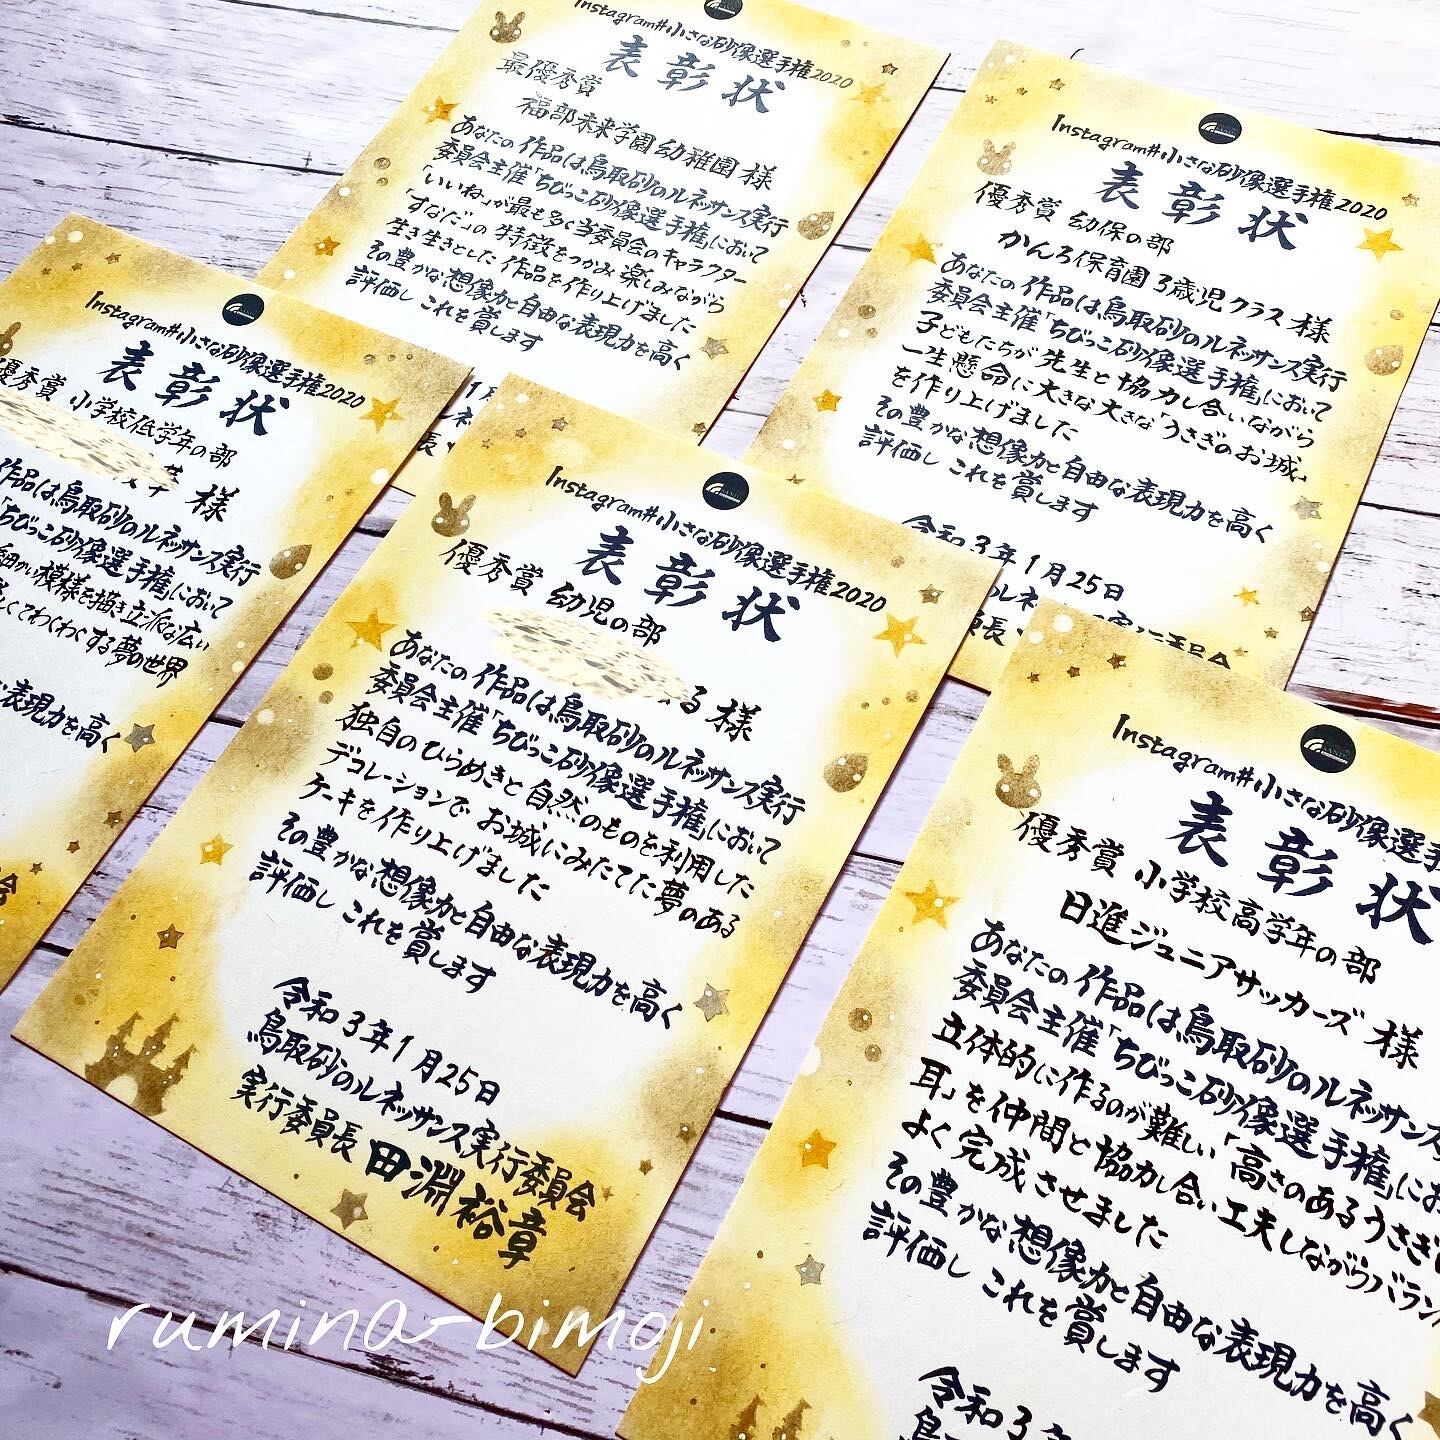 Instagram#小さな砂像選手権2020
表彰状
最優秀賞
福部未来学園幼稚園 様
あなたの作品は鳥取砂のルネッサンス実行
委員会主催「ちびっこ砂像選手権」において
「いいね」が最も多く当委員会のキャラクター
「すなだ」の特徴をつかみ楽しみながら
生き生きとした作品を作り上げました
その豊かな想像力と自由な表現力を高く
評価し これを賞します
Instagram#小さな砂像選手権2020
表彰状
優秀賞 幼保の部
かんろ保育園3歳児クラス 様
あなたの作品は鳥取砂のルネッサンス実行
委員会主催「ちびっこ砂像選手権」において
子どもたちが先生と協力し合いながら
一生懸命に大きな大きな「うさぎのお城」
を作り上げました
その豊かな想像力と自由な表現力を高く
評価し これを賞します
令和3年1月25日
Instagram#小さな砂像選手権2020
表彰状
優秀賞 小学校低学年の部
様
作品は鳥取砂のルネッサンス実行
「ちびっこ砂像選手権」において
細かい模様を描き立派な広い
くてわくわくする夢の世界
表現力を高く
Instagram#小さな砂像選手権2020
表彰状
優秀賞 幼児の部
る 様
あなたの作品は鳥取砂のルネッサンス実行
委員会主催「ちびっこ砂像選手権」において
独自のひらめきと自然のものを利用した
デコレーションでお城にみたてた夢のある
ケーキを作り上げました
その豊かな想像力と自由な表現力を高く
評価し これを賞します
令和3年1月25日
鳥取砂のルネッサンス実行委員会
実行委員長 田淵裕章
Instagram#小さな砂像選手
表彰状
優秀賞 小学校高学年の部
日進ジュニアサッカーズ 様
あなたの作品は鳥取砂のルネッサンス
委員会主催「ちびっこ砂像選手権」にお
立体的に作るのが難しい「高さのあるうさぎ
耳」を仲間と協力し合い工夫しながらバラン
よく完成させました
その豊かな想像力と自由な表現力を高く
評価し これを賞します
令和3年
rumina-bimoji